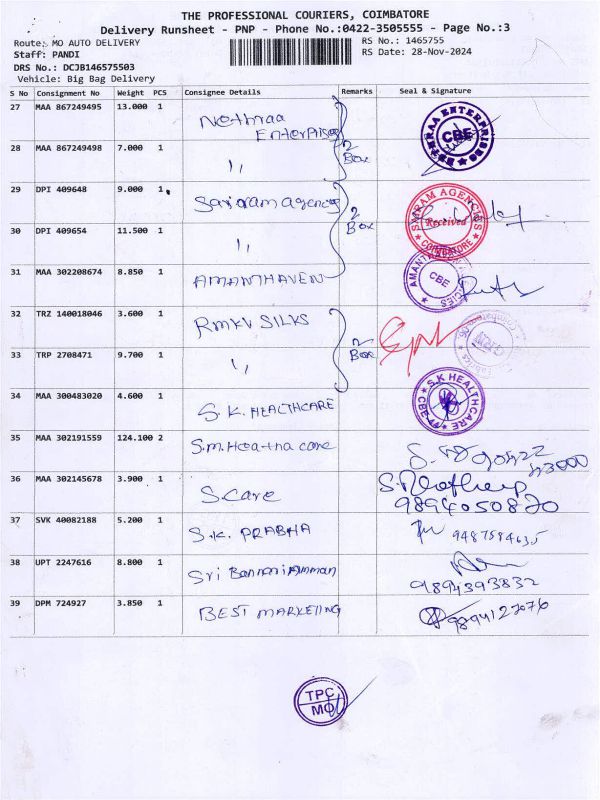 THE PROFESSIONAL COURIERS, COIMBATORE
Delivery Runsheet - PNP - Phone No.:0422-3505555 - Page No.:3
Route: MO AUTO DELIVERY
RS No.: 1465755
Staff: PANDI
RS Date: 28-Nov-2024
DRS No.: DCJB146575503
Vehicle: Big Bag Delivery
S No Consignment No Weight PCS Consignee Details Remarks Seal & Signature
27 MAA 867249495 13.000 1 Nethraa Enterprises NETHRAA ENTERPRISES CBE
28 MAA 867249498 7.000 1 ,, 2 Box
29 DPI 409648 9.000 1 Sairam agencies 2 Box SAIRAM AGENCIES Received COIMBATORE
30 DPI 409654 11.500 1 ,,
31 MAA 302208674 8.850 1 AMANTHAVEN CBE
32 TRZ 140018046 3.600 1 RMKV SILKS 2 Box
33 TRP 2708471 9.700 1 ,,
34 MAA 300483020 4.600 1 S.K. HEALTHCARE S.K HEALTHCARE CBE
35 MAA 302191559 124.100 2 S.M. care
36 MAA 302145678 3.900 1 S.care 9894050870
37 SVK 40082188 5.200 1 S.K. PRABHA 9487584635
38 UPT 2247616 8.800 1 Sri Bannari Amman 9894393832
39 DPM 724927 3.850 1 BEST MARKETING 9894127076
TPC
MO